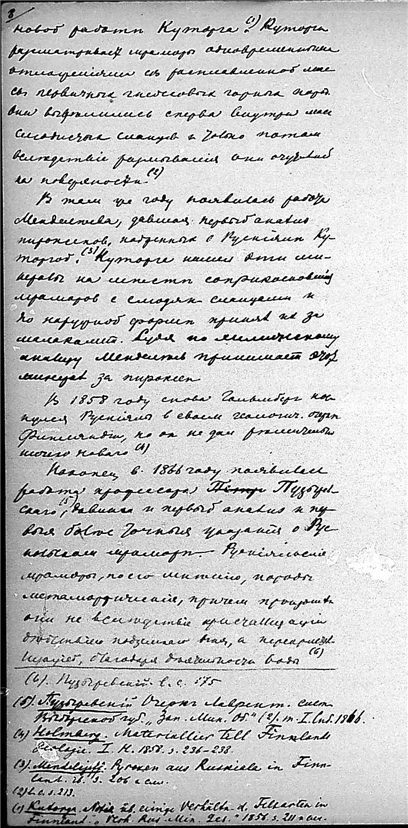 8
новой работы Куторга (1). Куторга
рассматривает мраморы одновременными
отложениями съ расплавленной мас
сы первичных гнейсовых горных пород
Они выделились сперва внутри масс
слюдистых сланцев и только потом
вследствие размывания они очутились
на поверхности (2)
В том же году появилась работа
Менделеева, давшая первый анализ
пироксенов, найденных в Рускиала Ку
торгой. (3) Куторге нашел эти ми-
нералы на месте соприкосновения
мраморов с слюдян. сланцами и
по наружной форме принял их за
малаколит. Судя по химическому
анализу Менделеев принимает этот
минерал за пироксен
В 1858 году снова Гольмберг кос-
нулся Рускиалы в своем геологич. очерк
Финляндии, но он не дал решительно
ничего нового (4)
Наконец в 1866 году появилась
работа профессора Пузырев-
ского (5), давшая и первый анализ и пе
рвыя более точныя указания о Рус
кольском мраморе. Рускиальские
мраморы, по его мнению, породы
метаморфические, причем произошли
они не вследствие кристаллизации
действием подземного огня, а перекристал
лизацией, благодаря деятельности воды (6)
(6). Пузыревский l. c. 575
(5). Пузыревский Очерк Лаврент. сист.
Выборгской губ. „Зап. Мин. Об." (2). т. I. Спб. 1866.
(4) Holmberg. Materialier till Finnlands
Geologie. I. H. 1858. s. 236-238.
(3). Mendelejeff. Pyroxen aus Ruskiala in Finn-
land. ib. s. 206 и сл.
(2) l. c. s. 213.
(1) Kutorga. Notiz üb. einige Verhältn. d. Felsarten in
Finnland. „Verh. Rus. Min. Ges." 1856 s. 211 и сл.